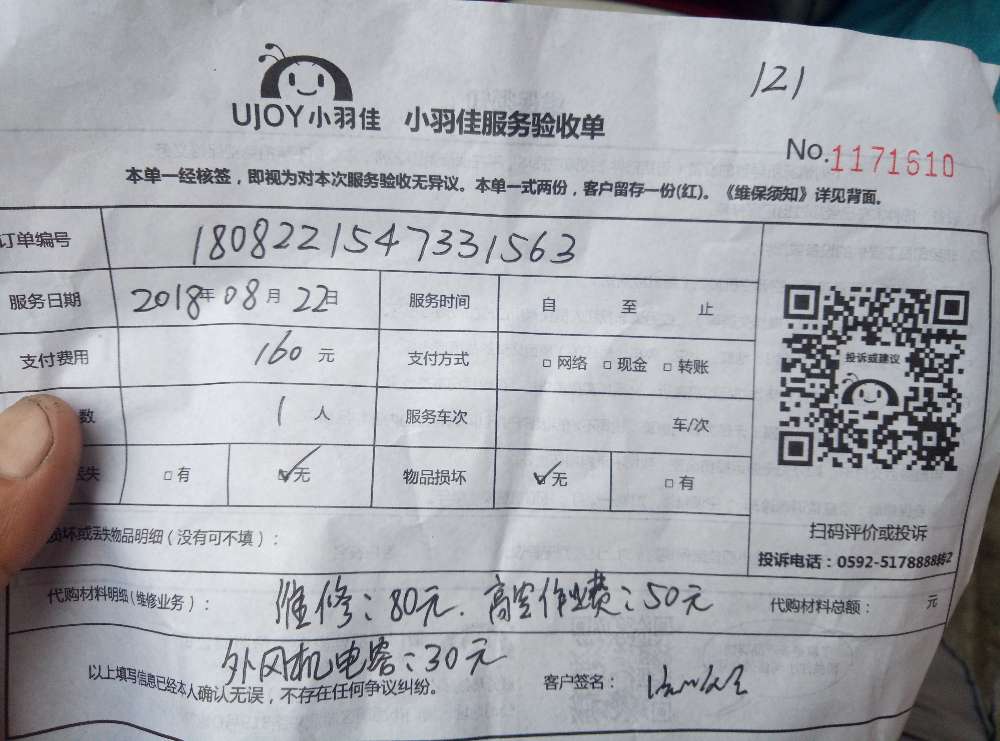 121
UJOY小羽佳 小羽佳服务验收单
No.1171610
本单一经核签，即视为对本次服务验收无异议。本单一式两份，客户留存一份(红)。《维保须知》详见背面。
订单编号 180822154733​1563
服务日期 2018年08月22日 服务时间 自 至 止
支付费用 160元 支付方式 □网络 □现金 □转账
数 1人 服务车次 车/次
丢失 □有 ☑无 物品损坏 ☑无 □有
投诉或建议
扫码评价或投诉
投诉电话：0592-5178888转2
损坏或丢失物品明细（没有可不填）：
代购材料明细（维修业务）： 维修：80元. 高空作业费：50元 代购材料总额： 元
外风机电容：30元
以上填写信息已经本人确认无误，不存在任何争议纠纷。 客户签名：